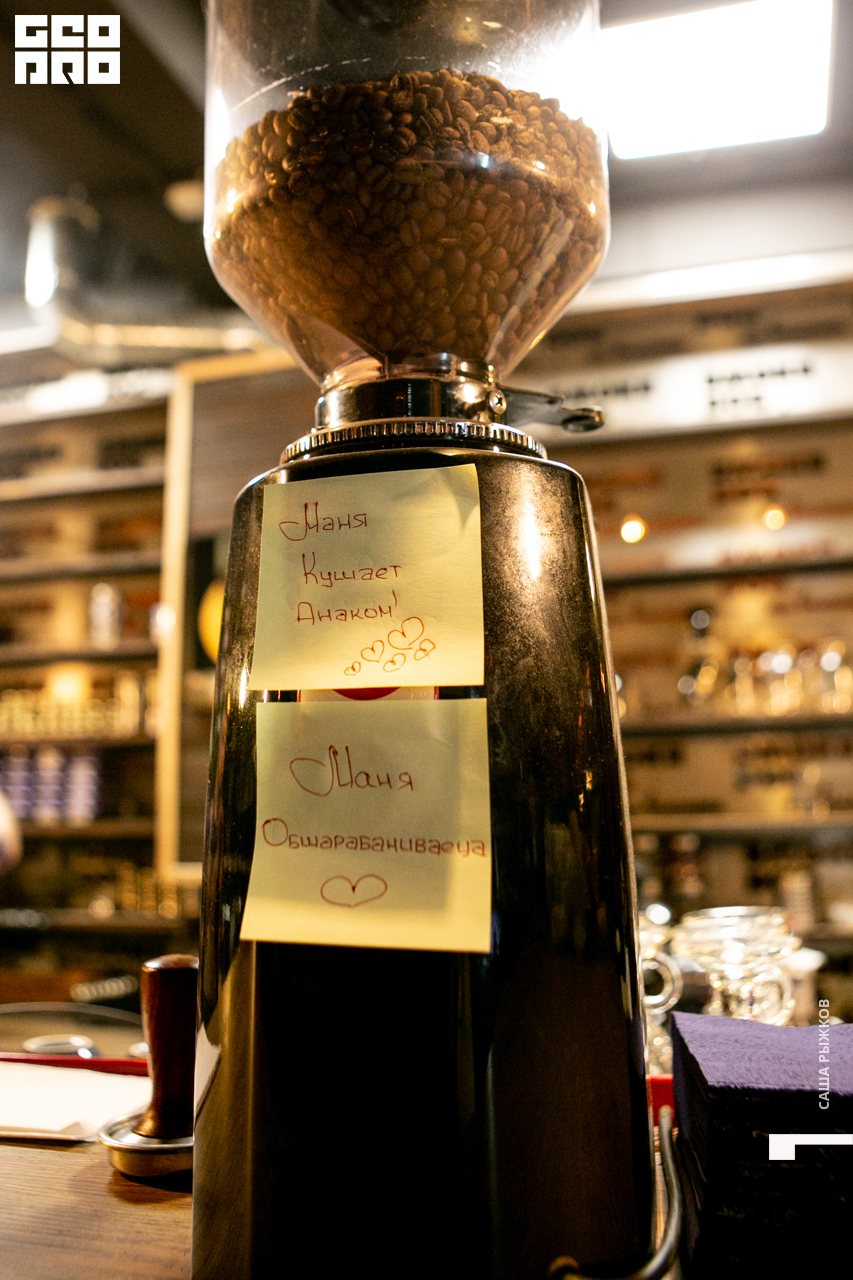 GEO
PRO
Маня
Кушает
Анаком!
Маня
Обшарабаниваеца
САША РЫЖКОВ